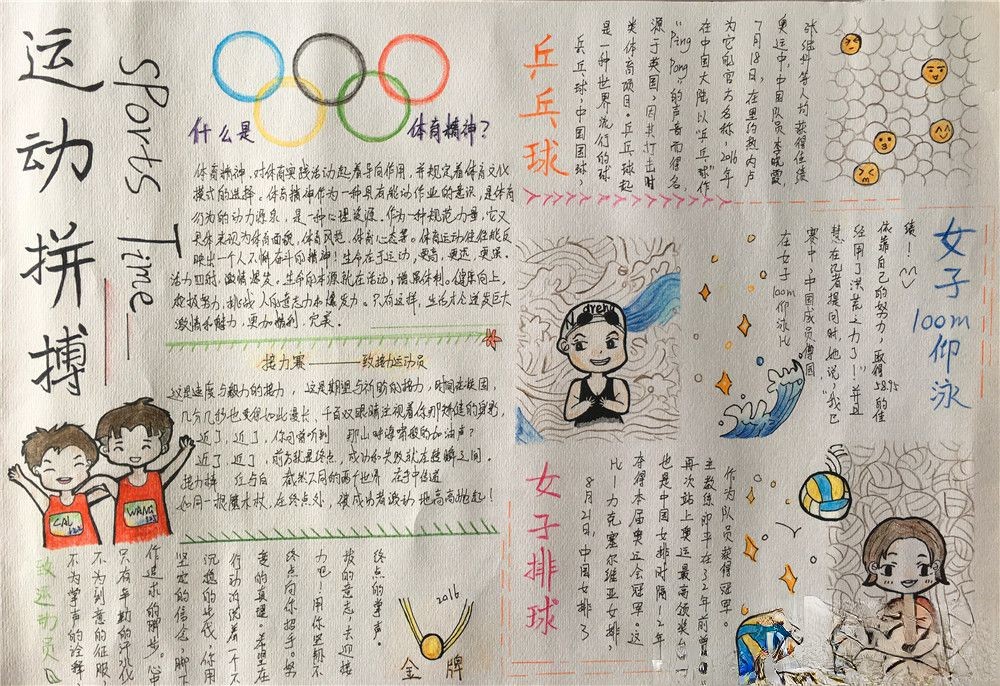 运动拼搏
sports Time
什么是
体育精神？
体育精神，对体育实践活动起着导向作用，并规定着体育文化
模式的选择。体育精神作为一种具有能动作业的意识，是体育
行为的动力源泉，是一种心理资源。作为一种规范力量，它又
具体表现为体育面貌，体育风范，体育心态等。体育运动往往能反
映出一个人不懈奋斗的精神！生命在于运动，更高，更远，更强。
活力四射，激情爆发，生命的本源就在活动，增强体制。健康向上，
顽强努力，挑战人的意志力和爆发力。只有这样，生活才会迸发巨大
激情和魅力，更加顺利，完美。
接力赛——致接力运动员
这是速度与毅力的接力，这是期望与祈盼的接力，时间在校园，
几分几秒也变得如此漫长，千百双眼睛注视着你那矫健的身影，
近了，近了，你可曾听到 那山呼海啸般的加油声？
近了，近了，前方就是终点，成功和失败就在转瞬之间。
接力棒 红与白 截然不同的两个世界 在手中传递
如同一根魔术杖，在终点处，被成功者激动地高高抛起！
CAL
WANG
致运动员
不为掌声的诠释，
不为刻意的征服，
只有辛勤的汗水化
作追求的脚步。心中
坚定的信念，脚下
沉稳的步伐，你用
行动诉说着一个不
变的真理。希望在
终点向你招手。努
力吧！用你坚韧不
拔的意志，去迎接
终点的掌声。
2016
金牌
乒乓球
乒乓球，中国国球，
是一种世界流行的球
类体育项目。乒乓球起
源于英国，因其打击时
“Ping Pong”的声音而得名。
在中国大陆以“乒乓球”作
为它的官方名称，2016年
7月18日，在里约热内卢
奥运中，中国队员李晓霞，
张继科等人均获得佳绩
女子100m仰泳
在女子100m仰泳比
赛中，中国成员傅园
慧在记者提问时，她说，“我已
经用了洪荒之力了！”并且
依靠自己的努力，取得58.95的佳
绩！
N drena
女子排球
8月21日，中国女排3
比1力克塞尔维亚女排，
夺得本届奥运会冠军。这
也是中国女排时隔12年
再次站上奥运最高领奖台。
主教练郎平在32年前曾
作为队员获得冠军。